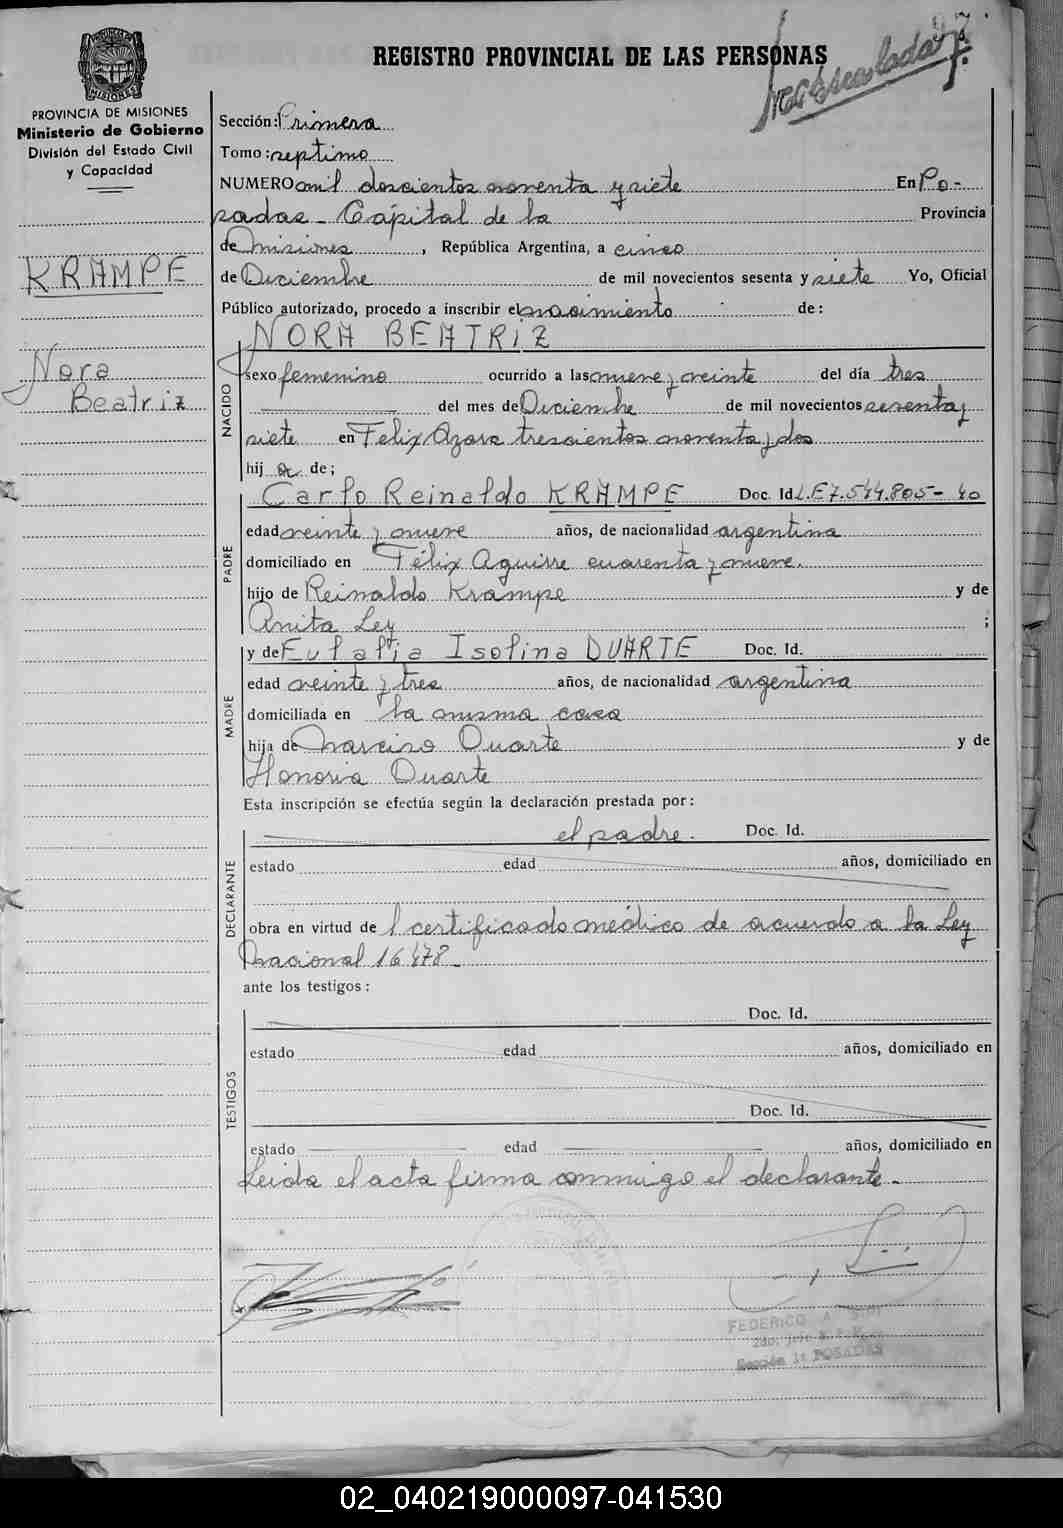 REGISTRO PROVINCIAL DE LAS PERSONAS
PROVINCIA DE MISIONES
Ministerio de Gobierno
División del Estado Civil
y Capacidad
KRAMPE
Nora
Beatriz
Sección: Primera
Tomo: septimo
NUMERO mil doscientos noventa y siete En Po-
sadas - Cápital de la Provincia
de Misiones, República Argentina, a cinco
de Diciembre de mil novecientos sesenta y siete Yo, Oficial
Público autorizado, procedo a inscribir el nacimiento de:
NORA BEATRIZ
NACIDO
sexo femenino ocurrido a las nueve y veinte del día tres
del mes de Diciembre de mil novecientos sesenta y
siete en Felix Azara trescientos noventa y dos
hij a de;
PADRE
Carlo Reinaldo KRAMPE Doc. Id. L.E 7.544.805- 40
edad veinte y nueve años, de nacionalidad argentina
domiciliado en Félix Aguirre cuarenta y nueve.
hijo de Reinaldo Krampe y de
Anita Ley ;
MADRE
y de Eulalia Isolina DUARTE Doc. Id.
edad veinte y tres años, de nacionalidad argentina
domiciliada en la misma casa
hija de Narciso Duarte y de
Honoria Duarte
Esta inscripción se efectúa según la declaración prestada por:
DECLARANTE
el padre. Doc. Id.
estado edad años, domiciliado en
obra en virtud de l certificado médico de acuerdo a la Ley
Nacional 16478-
ante los testigos:
TESTIGOS
Doc. Id.
estado edad años, domiciliado en
Doc. Id.
estado edad años, domiciliado en
Leida el acta firma conmigo el declarante-
FEDERICO A.
Sección 1ª POSADAS
02_040219000097-041530